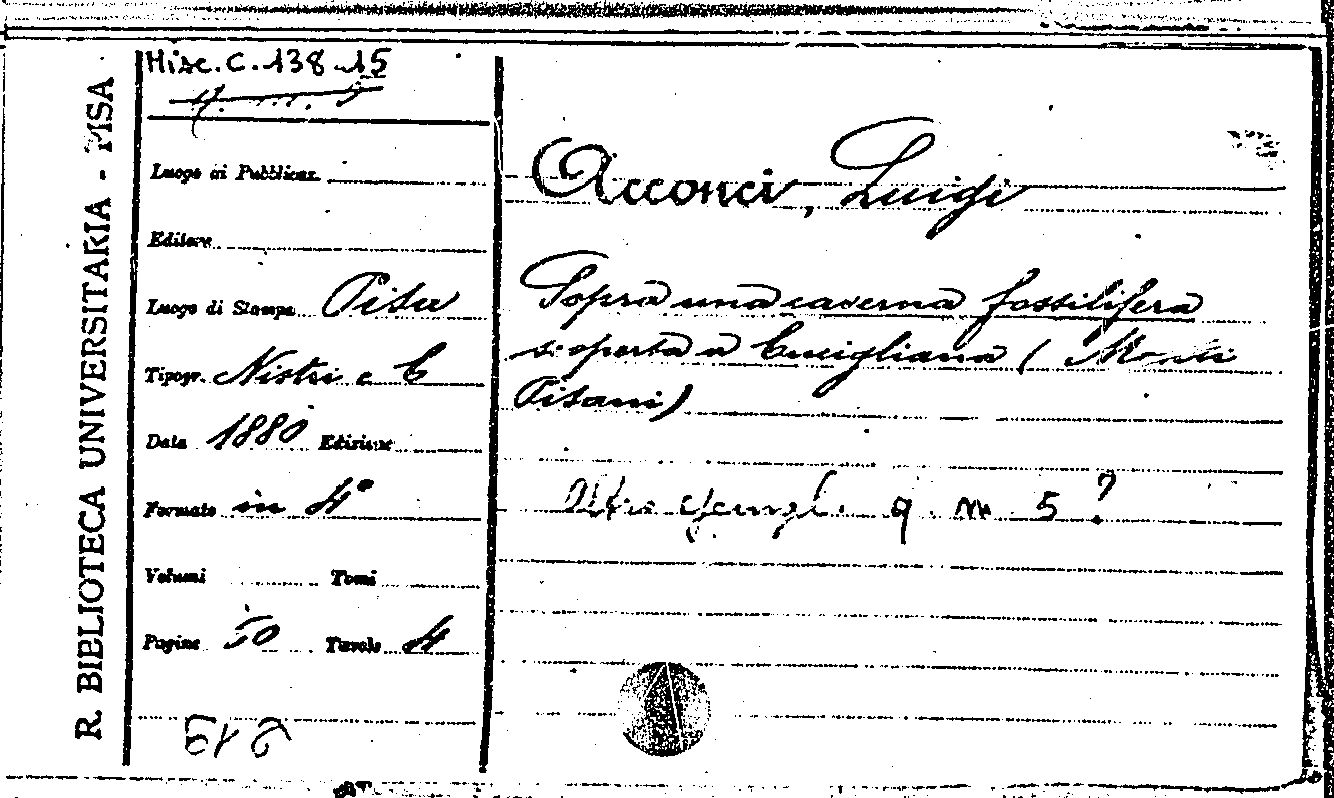 R. BIBLIOTECA UNIVERSITARIA - PISA
Misc. C. 138.15
Luogo di Pubblicaz.
Editore
Luogo di Stampa Pisa
Tipogr. Nistri e C
Data 1880 Edizione
Formato in 4°
Volumi Tomi
Pagine 50 Tavole 4
Acconci, Luigi
Sopra una caverna fossilifera
scoperta a Cucigliana (Monti
Pisani)
9. m 5 ?